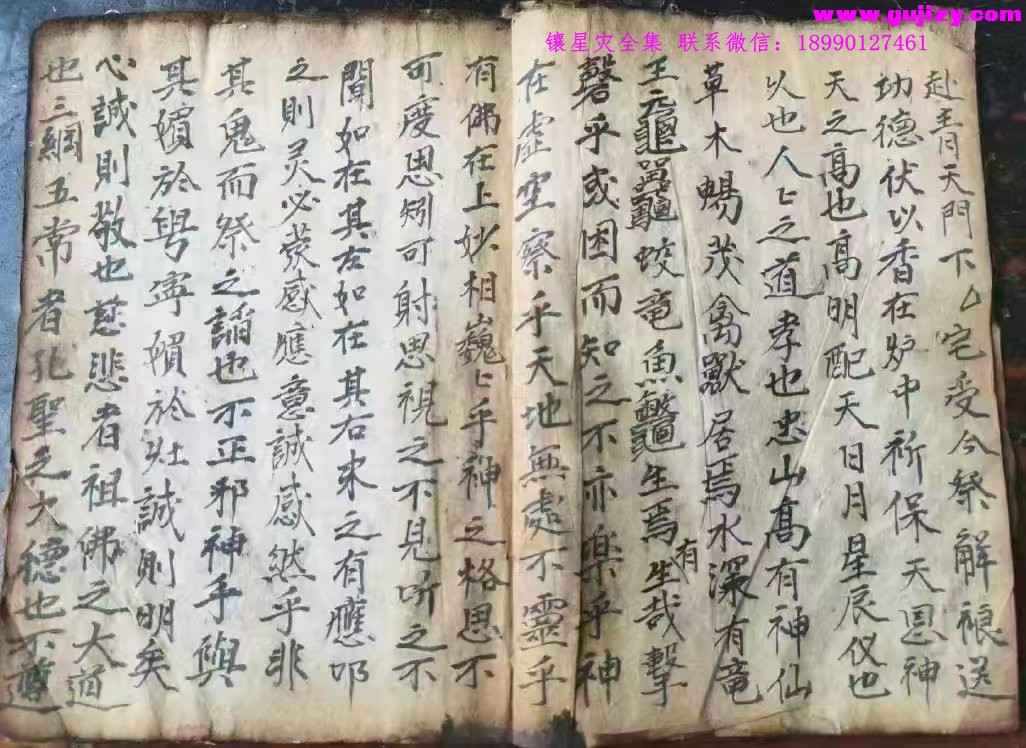 www.gujizy.com
镶星灾全集 联系微信：18990127461
赴青天門下厶宅受今祭解禳送
功德伏以香在炉中祈保天恩神
天之高也高明配天日月星辰仪也
以也人匕之道孝也忠山高有神仙
草木暢茂禽獸居焉水深有竜
王元龜鼉蛟竜魚鱉生焉有生哉擊
磬乎或困而知之不亦樂乎神
在虚空察乎天地無處不靈乎
有佛在上妙相巍匕乎神之格思不
可度思矧可射思視之不見听之不
聞如在其左如在其右求之有應叩
之則灵必蒙感應意誠感然乎非
其鬼而祭之謟也不正邪神乎與
其嬪於奥寧嬪於灶誠則明矣
心誠則敬也慈悲者祖佛之大道
也三綱五常者孔聖之大德也不尊